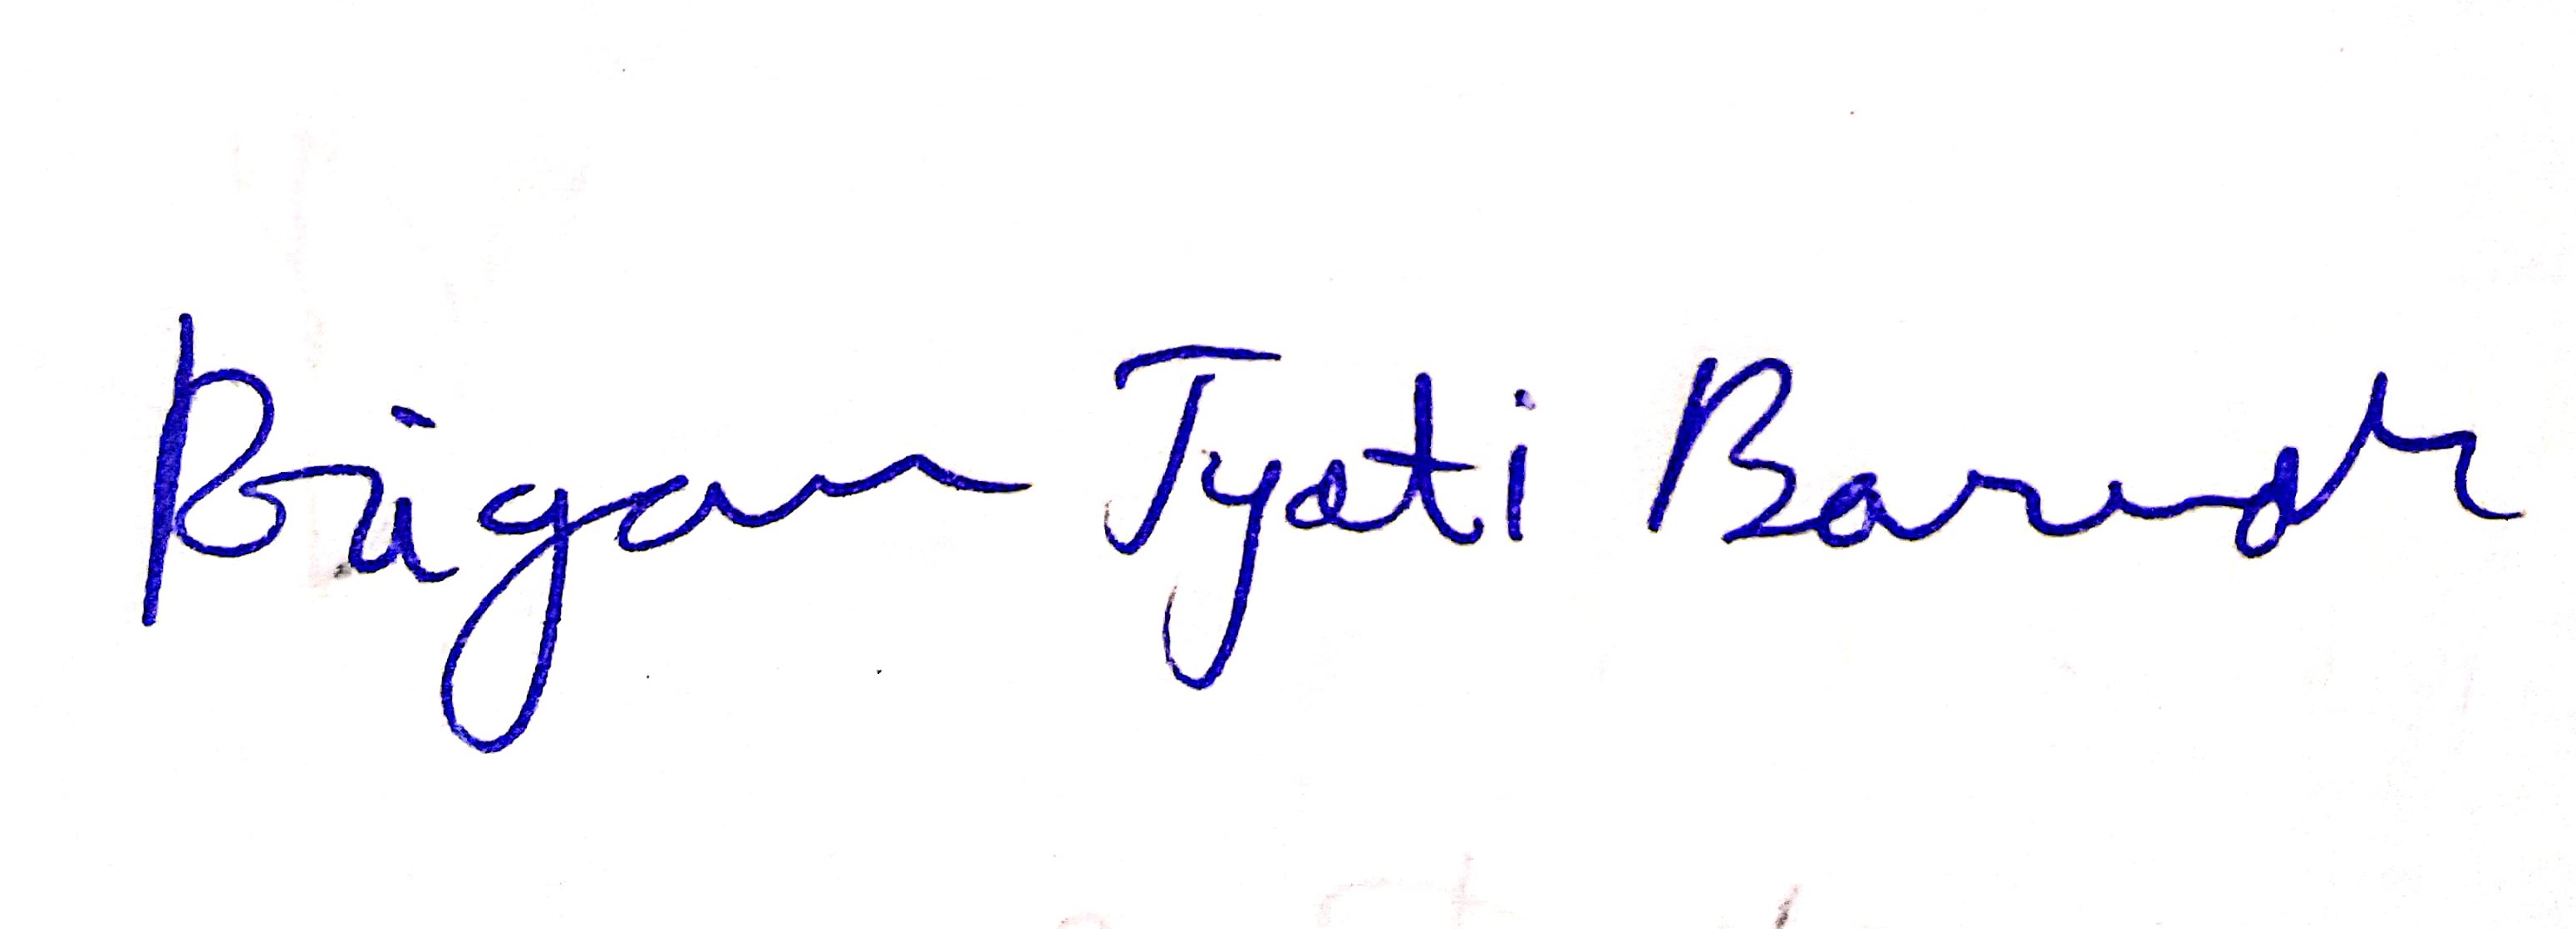 Brigan Jyoti Baruah